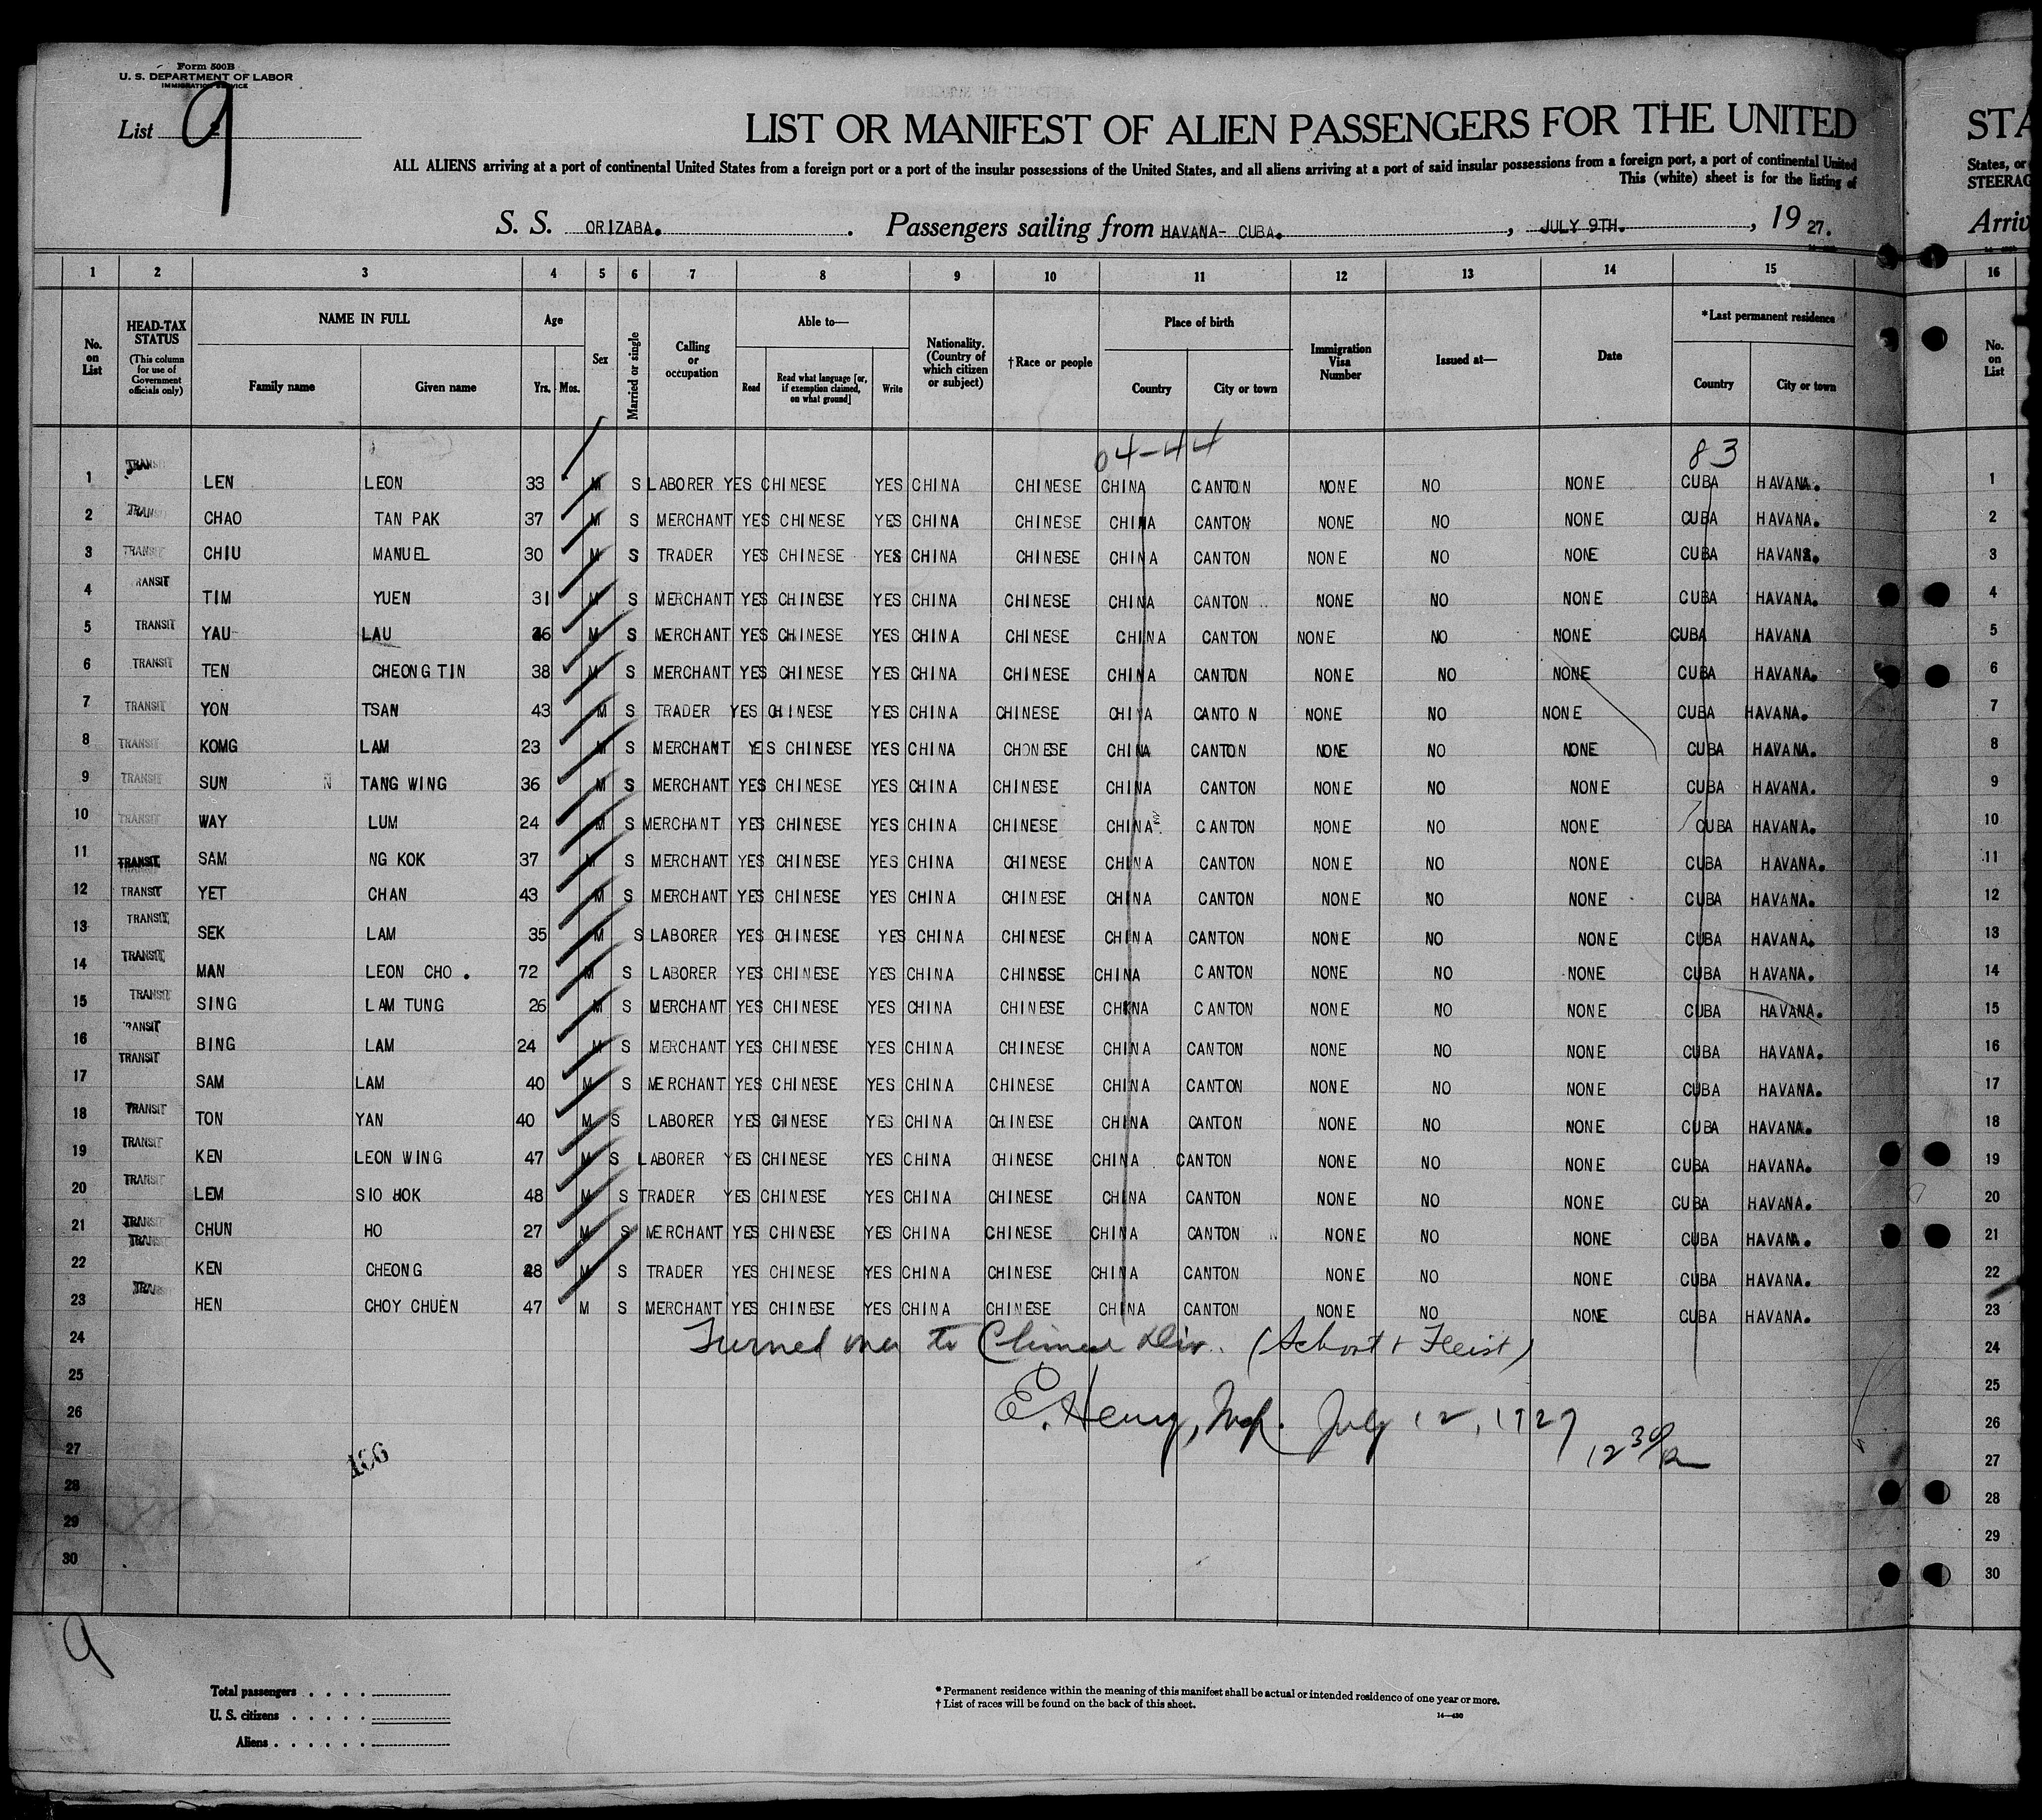 Form 500B
U. S. DEPARTMENT OF LABOR
IMMIGRATION SERVICE
List 9
LIST OR MANIFEST OF ALIEN PASSENGERS FOR THE UNITED
STA
ALL ALIENS arriving at a port of continental United States from a foreign port or a port of the insular possessions of the United States, and all aliens arriving at a port of said insular possessions from a foreign port, a port of continental United
States, or
This (white) sheet is for the listing of
STEERAG
S. S. ORIZABA. Passengers sailing from HAVANA- CUBA. , JULY 9TH. , 19 27.
Arriv
1 2 3 4 5 6 7 8 9 10 11 12 13 14 15 16
No. on List HEAD-TAX STATUS (This column for use of Government officials only) NAME IN FULL Age Sex Married or single Calling or occupation Able to— Nationality. (Country of which citizen or subject) †Race or people Place of birth Immigration Visa Number Issued at— Date *Last permanent residence No. on List
Family name Given name Yrs. Mos. Read Read what language [or, if exemption claimed, on what ground] Write Country City or town Country City or town
04-44 83
1 TRANSIT LEN LEON 33 M S LABORER YES CHINESE YES CHINA CHINESE CHINA CANTON NONE NO NONE CUBA HAVANA. 1
2 TRANS CHAO TAN PAK 37 M S MERCHANT YES CHINESE YES CHINA CHINESE CHINA CANTON NONE NO NONE CUBA HAVANA. 2
3 TRANSIT CHIU MANUEL 30 M S TRADER YES CHINESE YES CHINA CHINESE CHINA CANTON NONE NO NONE CUBA HAVANA. 3
4 RANSIT TIM YUEN 31 M S MERCHANT YES CHINESE YES CHINA CHINESE CHINA CANTON NONE NO NONE CUBA HAVANA. 4
5 TRANSIT YAU LAU M S MERCHANT YES CHINESE YES CHINA CHINESE CHINA CANTON NONE NO NONE CUBA HAVANA 5
6 TRANSIT TEN CHEONG TIN 38 M S MERCHANT YES CHINESE YES CHINA CHINESE CHINA CANTON NONE NO NONE CUBA HAVANA. 6
7 TRANSIT YON TSAN 43 M S TRADER YES CHINESE YES CHINA CHINESE CHINA CANTO N NONE NO NONE CUBA HAVANA. 7
8 TRANSIT KOMG LAM 23 M S MERCHANT YES CHINESE YES CHINA CHONESE CHINA CANTON NONE NO NONE CUBA HAVANA. 8
9 TRANSIT SUN N TANG WING 36 M S MERCHANT YES CHINESE YES CHINA CHINESE CHINA CANTON NONE NO NONE CUBA HAVANA. 9
10 TRANSIT WAY LUM 24 M S MERCHANT YES CHINESE YES CHINA CHINESE CHINA CANTON NONE NO NONE CUBA HAVANA. 10
11 TRANSIT SAM NG KOK 37 M S MERCHANT YES CHINESE YES CHINA CHINESE CHINA CANTON NONE NO NONE CUBA HAVANA. 11
12 TRANSIT YET CHAN 43 M S MERCHANT YES CHINESE YES CHINA CHINESE CHINA CANTON NONE NO NONE CUBA HAVANA. 12
13 TRANSIT SEK LAM 35 M S LABORER YES CHINESE YES CHINA CHINESE CHINA CANTON NONE NO NONE CUBA HAVANA. 13
14 TRANSIT MAN LEON CHO . 72 M S LABORER YES CHINESE YES CHINA CHINESE CHINA CANTON NONE NO NONE CUBA HAVANA. 14
15 TRANSIT SING LAM TUNG 26 M S MERCHANT YES CHINESE YES CHINA CHINESE CHINA CANTON NONE NO NONE CUBA HAVANA. 15
16 RANSIT BING LAM 24 M S MERCHANT YES CHINESE YES CHINA CHINESE CHINA CANTON NONE NO NONE CUBA HAVANA. 16
17 TRANSIT SAM LAM 40 M S MERCHANT YES CHINESE YES CHINA CHINESE CHINA CANTON NONE NO NONE CUBA HAVANA. 17
18 TRANSIT TON YAN 40 M S LABORER YES CHINESE YES CHINA CHINESE CHINA CANTON NONE NO NONE CUBA HAVANA. 18
19 TRANSIT KEN LEON WING 47 M S LABORER YES CHINESE YES CHINA CHINESE CHINA CANTON NONE NO NONE CUBA HAVANA. 19
20 TRANSIT LEM SIO HOK 48 M S TRADER YES CHINESE YES CHINA CHINESE CHINA CANTON NONE NO NONE CUBA HAVANA. 20
21 TRANSIT CHUN HO 27 M S MERCHANT YES CHINESE YES CHINA CHINESE CHINA CANTON NONE NO NONE CUBA HAVANA. 21
22 TRANSIT KEN CHEONG M S TRADER YES CHINESE YES CHINA CHINESE CHINA CANTON NONE NO NONE CUBA HAVANA. 22
23 TRANS HEN CHOY CHUEN 47 M S MERCHANT YES CHINESE YES CHINA CHINESE CHINA CANTON NONE NO NONE CUBA HAVANA. 23
24 Turned over to Chinese Div. 24
25 25
26 E. Henry, Insp. July 12, 1927 26
27 12 30/ 27
186
28 28
29 29
30 30
9
Total passengers
U. S. citizens
Aliens
* Permanent residence within the meaning of this manifest shall be actual or intended residence of one year or more.
† List of races will be found on the back of this sheet.
14—430